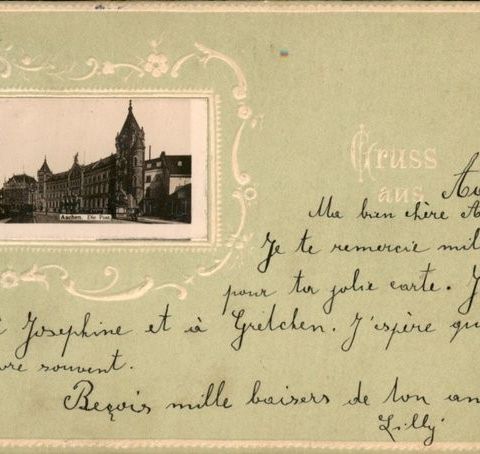 Gruss
aus
Aachen. Die Post.
Ma bien chère
Je te remercie mil
pour ta jolie carte. J
Josephine et à Gretchen. J'espère qu
souvent.
Reçois mille baisers de ton am
Lilly